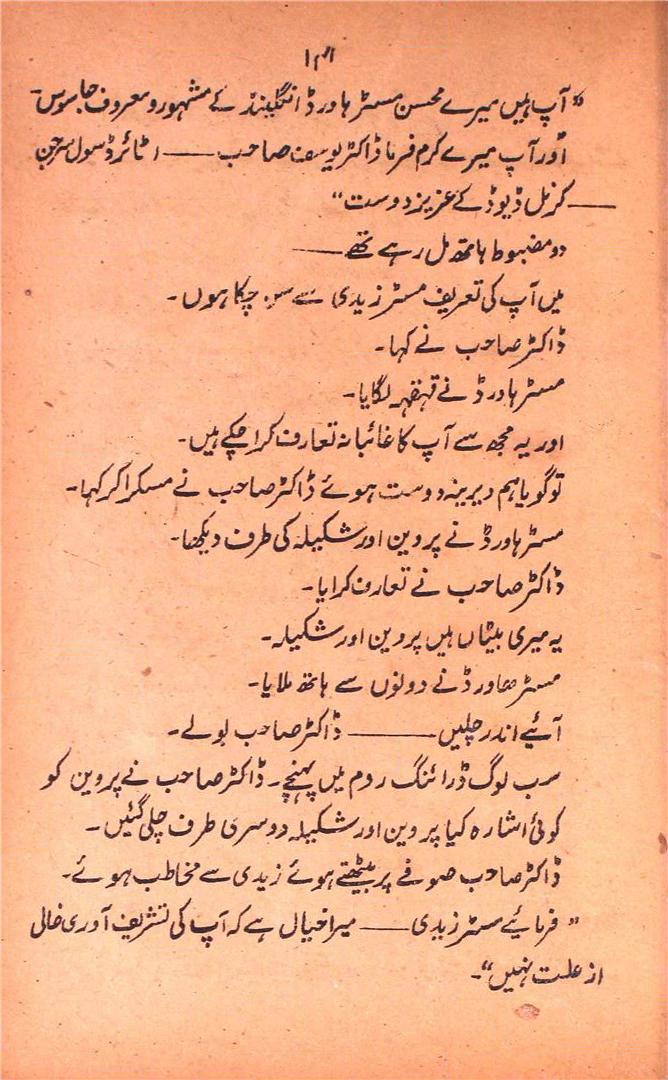 ۱۴۱
"آپ ہیں میرے محسن مسٹر ہاورڈ انگلینڈ کے مشہور و معروف جاسوس۔
اور آپ میرے کرم فرما ڈاکٹر یوسف صاحب —— اٹائرڈ سول سرجن
—— کرنل ڈیوڈ کے عزیز دوست"
دو مضبوط ہاتھ مل رہے تھے ——
میں آپ کی تعریف مسٹر زیدی سے سن چکا ہوں۔
ڈاکٹر صاحب نے کہا۔
مسٹر ہاورڈ نے قہقہہ لگایا۔
اور یہ مجھ سے آپ کا غائبانہ تعارف کرا چکے ہیں۔
تو گویا ہم دیرینہ دوست ہوئے ڈاکٹر صاحب نے مسکرا کر کہا۔
مسٹر ہاورڈ نے پروین اور شکیلہ کی طرف دیکھا۔
ڈاکٹر صاحب نے تعارف کرایا۔
یہ میری بیٹاں ہیں پروین اور شکیلہ۔
مسٹر ھاورڈ نے دونوں سے ہاتھ ملایا۔
آئیے اندر چلیں —— ڈاکٹر صاحب بولے۔
سب لوگ ڈرائنگ روم میں پہنچے۔ ڈاکٹر صاحب نے پروین کو
کوئی اشارہ کیا پروین اور شکیلہ دوسری طرف چلی گئیں۔
ڈاکٹر صاحب صوفے پر بیٹھتے ہوئے زیدی سے مخاطب ہوئے۔
"فرمائیے مسٹر زیدی —— میرا خیال ہے کہ آپ کی تشریف آوری خالی
از علت نہیں"۔